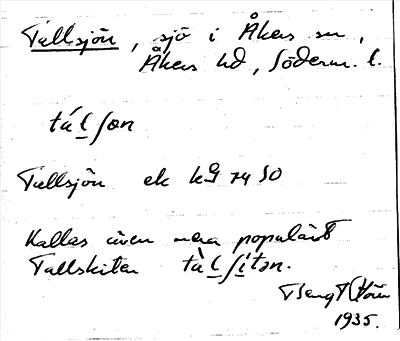 Tallsjön, sjö i Åkers sn,
Åkers hd, Söderm. l.
tálʃön
Tallsjön ek kG 74 SO
Kallas även mera populärt
Tallskiten tàlʃitən.
Bengt
1935.